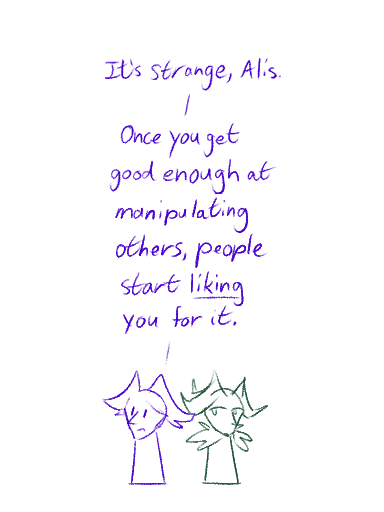 It's strange, Alis.
Once you get
good enough at
manipulating
others, people
start liking
you for it.